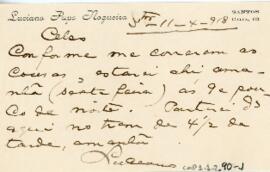 Luciano Pupo Nogueira
SANTOS
5ª 11-X-918
Celso
Conforme me correram as
cousas, estarei ahi ama-
nhã (sexta feira) as 9 e pou-
co de noite. Partirei d'
aqui no trem de 4 1/2 da
tarde, amanhã.
Luciano